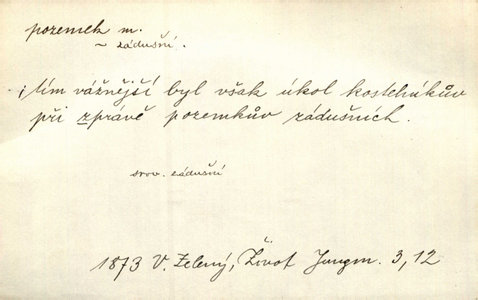 pozemek m.
~ zádušní.
tím vážnější byl však úkol kostelníkův
při zpravě pozemkův zádušních.
srov. zádušní
1873 V. Zelený, Život Jungm. 3, 12